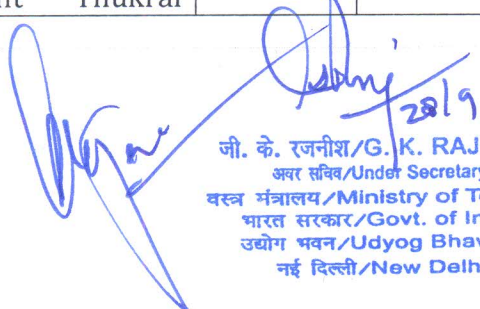 Thukral
28/9
जी. के. रजनीश/G. K. RAJ
अवर सचिव/Under Secretary
वस्त्र मंत्रालय/Ministry of T
भारत सरकार/Govt. of In
उद्योग भवन/Udyog Bhav
नई दिल्ली/New Delh